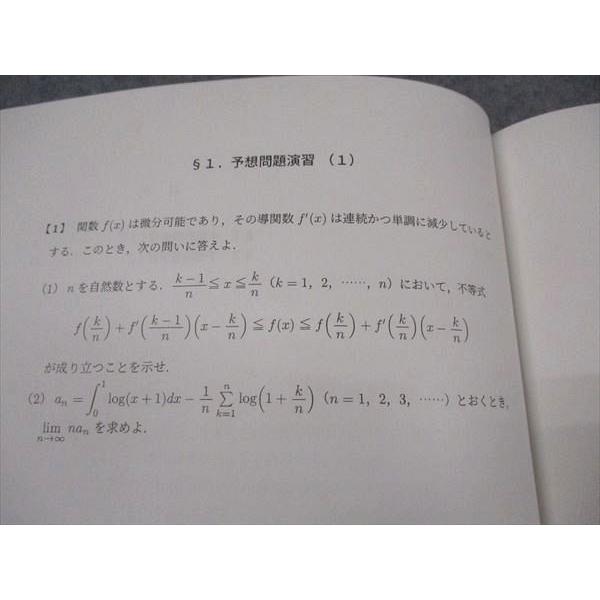 §1. 予想問題演習 (1)
【1】 関数 f(x) は微分可能であり，その導関数 f′(x) は連続かつ単調に減少していると
する．このとき，次の問いに答えよ．
(1) n を自然数とする． (k−1)/n ≦ x ≦ k/n (k = 1，2，……，n) において，不等式
f(k/n) + f′((k−1)/n)(x − k/n) ≦ f(x) ≦ f(k/n) + f′(k/n)(x − k/n)
が成り立つことを示せ．
(2) aₙ = ∫₀¹ log(x+1)dx − 1/n Σₖ₌₁ⁿ log(1 + k/n) (n = 1，2，3，……) とおくとき，
lim n→∞ naₙ を求めよ．